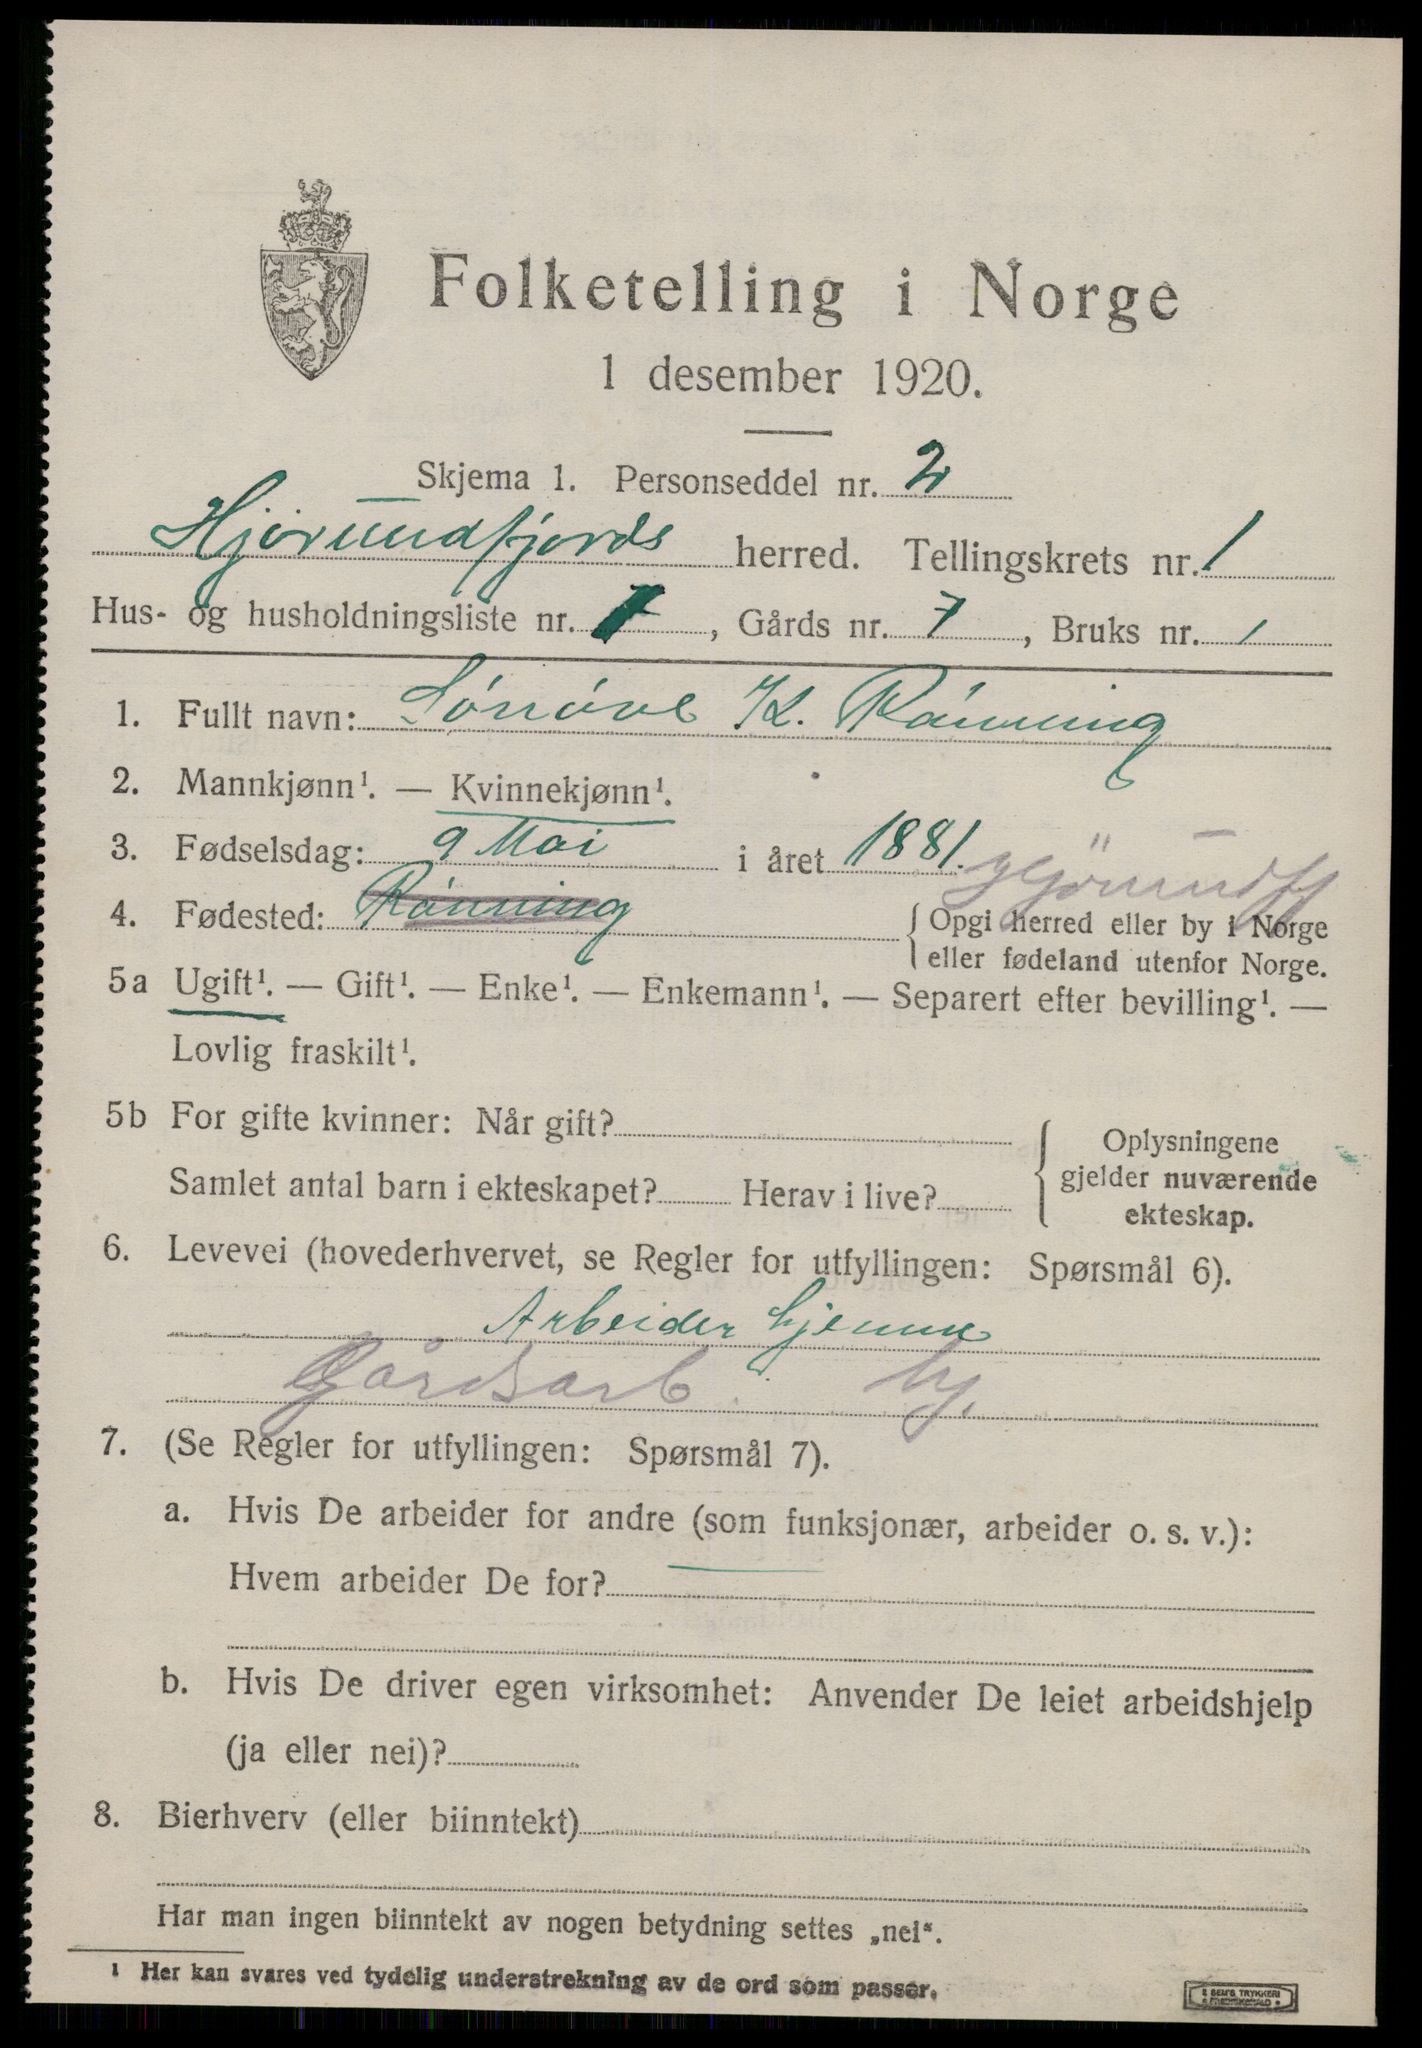 Folketelling i Norge
1 desember 1920.
Skjema 1. Personseddel nr. 2
Hjørundfjords herred. Tellingskrets nr. 1
Hus- og husholdningsliste nr. 7, Gårds nr. 7, Bruks nr. 1
1. Fullt navn: K. Rónning
2. Mannkjønn¹. — Kvinnekjønn¹.
3. Fødselsdag: 9 Mai i året 1881.
Hjörundfj
4. Fødested: Rónning { Opgi herred eller by i Norge
eller fødeland utenfor Norge.
5a Ugift¹. — Gift¹. — Enke¹. — Enkemann¹. — Separert efter bevilling¹. —
Lovlig fraskilt¹.
5b For gifte kvinner: Når gift?
Samlet antal barn i ekteskapet? Herav i live?
{ Oplysningene
gjelder nuværende
ekteskap.
6. Levevei (hovederhvervet, se Regler for utfyllingen: Spørsmål 6).
Arbeider hjemme
Gårdsarb. hj.
7. (Se Regler for utfyllingen: Spørsmål 7).
a. Hvis De arbeider for andre (som funksjonær, arbeider o. s. v.):
Hvem arbeider De for?
b. Hvis De driver egen virksomhet: Anvender De leiet arbeidshjelp
(ja eller nei)?
8. Bierhverv (eller biinntekt)
Har man ingen biinntekt av nogen betydning settes „nei“.
¹ Her kan svares ved tydelig understrekning av de ord som passer.
SEM'S TRYKKERI
FREDRIKSHALD